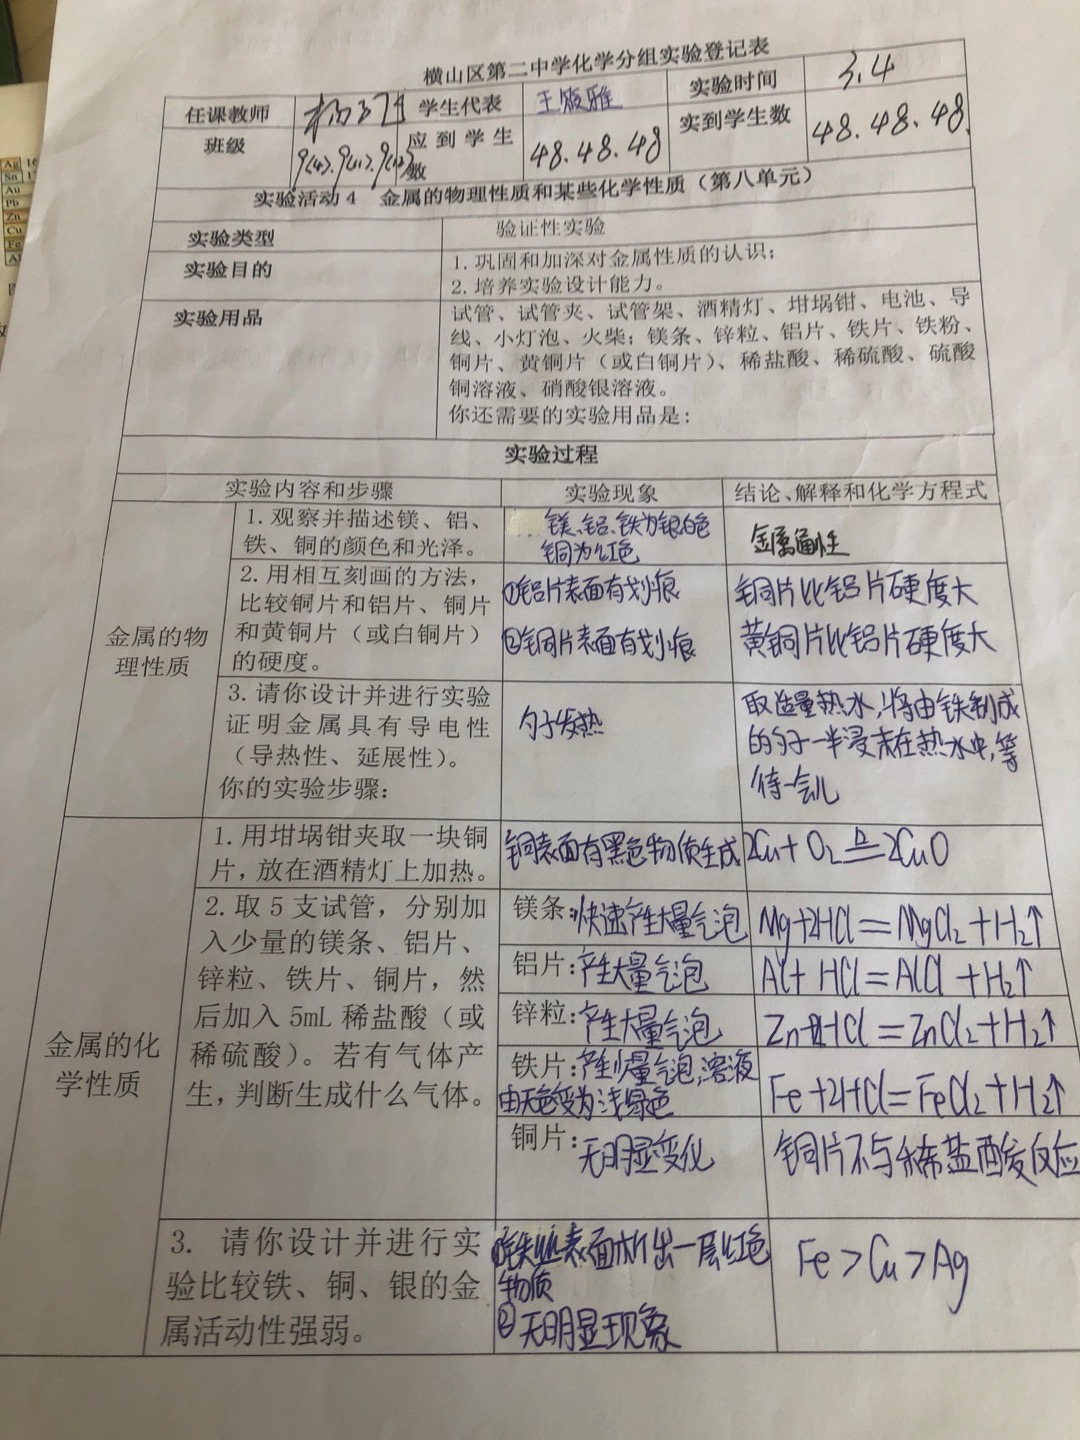 横山区第二中学化学分组实验登记表
任课教师 学生代表 王筱雅 实验时间 3.4
班级 9(10).9(11).9(12) 应到学生数 48.48.48 实到学生数 48.48.48.
实验活动4 金属的物理性质和某些化学性质（第八单元）
实验类型 验证性实验
实验目的
1.巩固和加深对金属性质的认识；
2.培养实验设计能力。
实验用品
试管、试管夹、试管架、酒精灯、坩埚钳、电池、导
线、小灯泡、火柴；镁条、锌粒、铝片、铁片、铁粉、
铜片、黄铜片（或白铜片）、稀盐酸、稀硫酸、硫酸
铜溶液、硝酸银溶液。
你还需要的实验用品是：
实验过程
实验内容和步骤 实验现象 结论、解释和化学方程式
金属的物
理性质
1.观察并描述镁、铝、
铁、铜的颜色和光泽。
镁、铝、铁为银白色
铜为红色
金属通性
2.用相互刻画的方法，
比较铜片和铝片、铜片
和黄铜片（或白铜片）
的硬度。
①铝片表面有划痕
②铜片表面有划痕
铜片比铝片硬度大
黄铜片比铝片硬度大
3.请你设计并进行实验
证明金属具有导电性
（导热性、延展性）。
你的实验步骤：
勺子发热
取适量热水，将由铁制成
的勺子一半浸末在热水中，等
待一会儿
金属的化
学性质
1.用坩埚钳夹取一块铜
片，放在酒精灯上加热。
铜表面有黑色物质生成
2Cu+O₂≜2CuO
2.取5支试管，分别加
入少量的镁条、铝片、
锌粒、铁片、铜片，然
后加入5mL稀盐酸（或
稀硫酸）。若有气体产
生，判断生成什么气体。
镁条：快速产生大量气泡
Mg+2HCl=MgCl₂+H₂↑
铝片：产生大量气泡
Al+HCl=AlCl+H₂↑
锌粒：产生大量气泡
Zn+2HCl=ZnCl₂+H₂↑
铁片：产生少量气泡，溶液
由无色变为浅绿色
Fe+2HCl=FeCl₂+H₂↑
铜片：无明显变化
铜片不与稀盐酸发反应
3.请你设计并进行实
验比较铁、铜、银的金
属活动性强弱。
①铁丝表面析出一层红色
物质
②无明显现象
Fe>Cu>Ag
Ag
Sn
Au
Pb
Zn
Cu
Fe